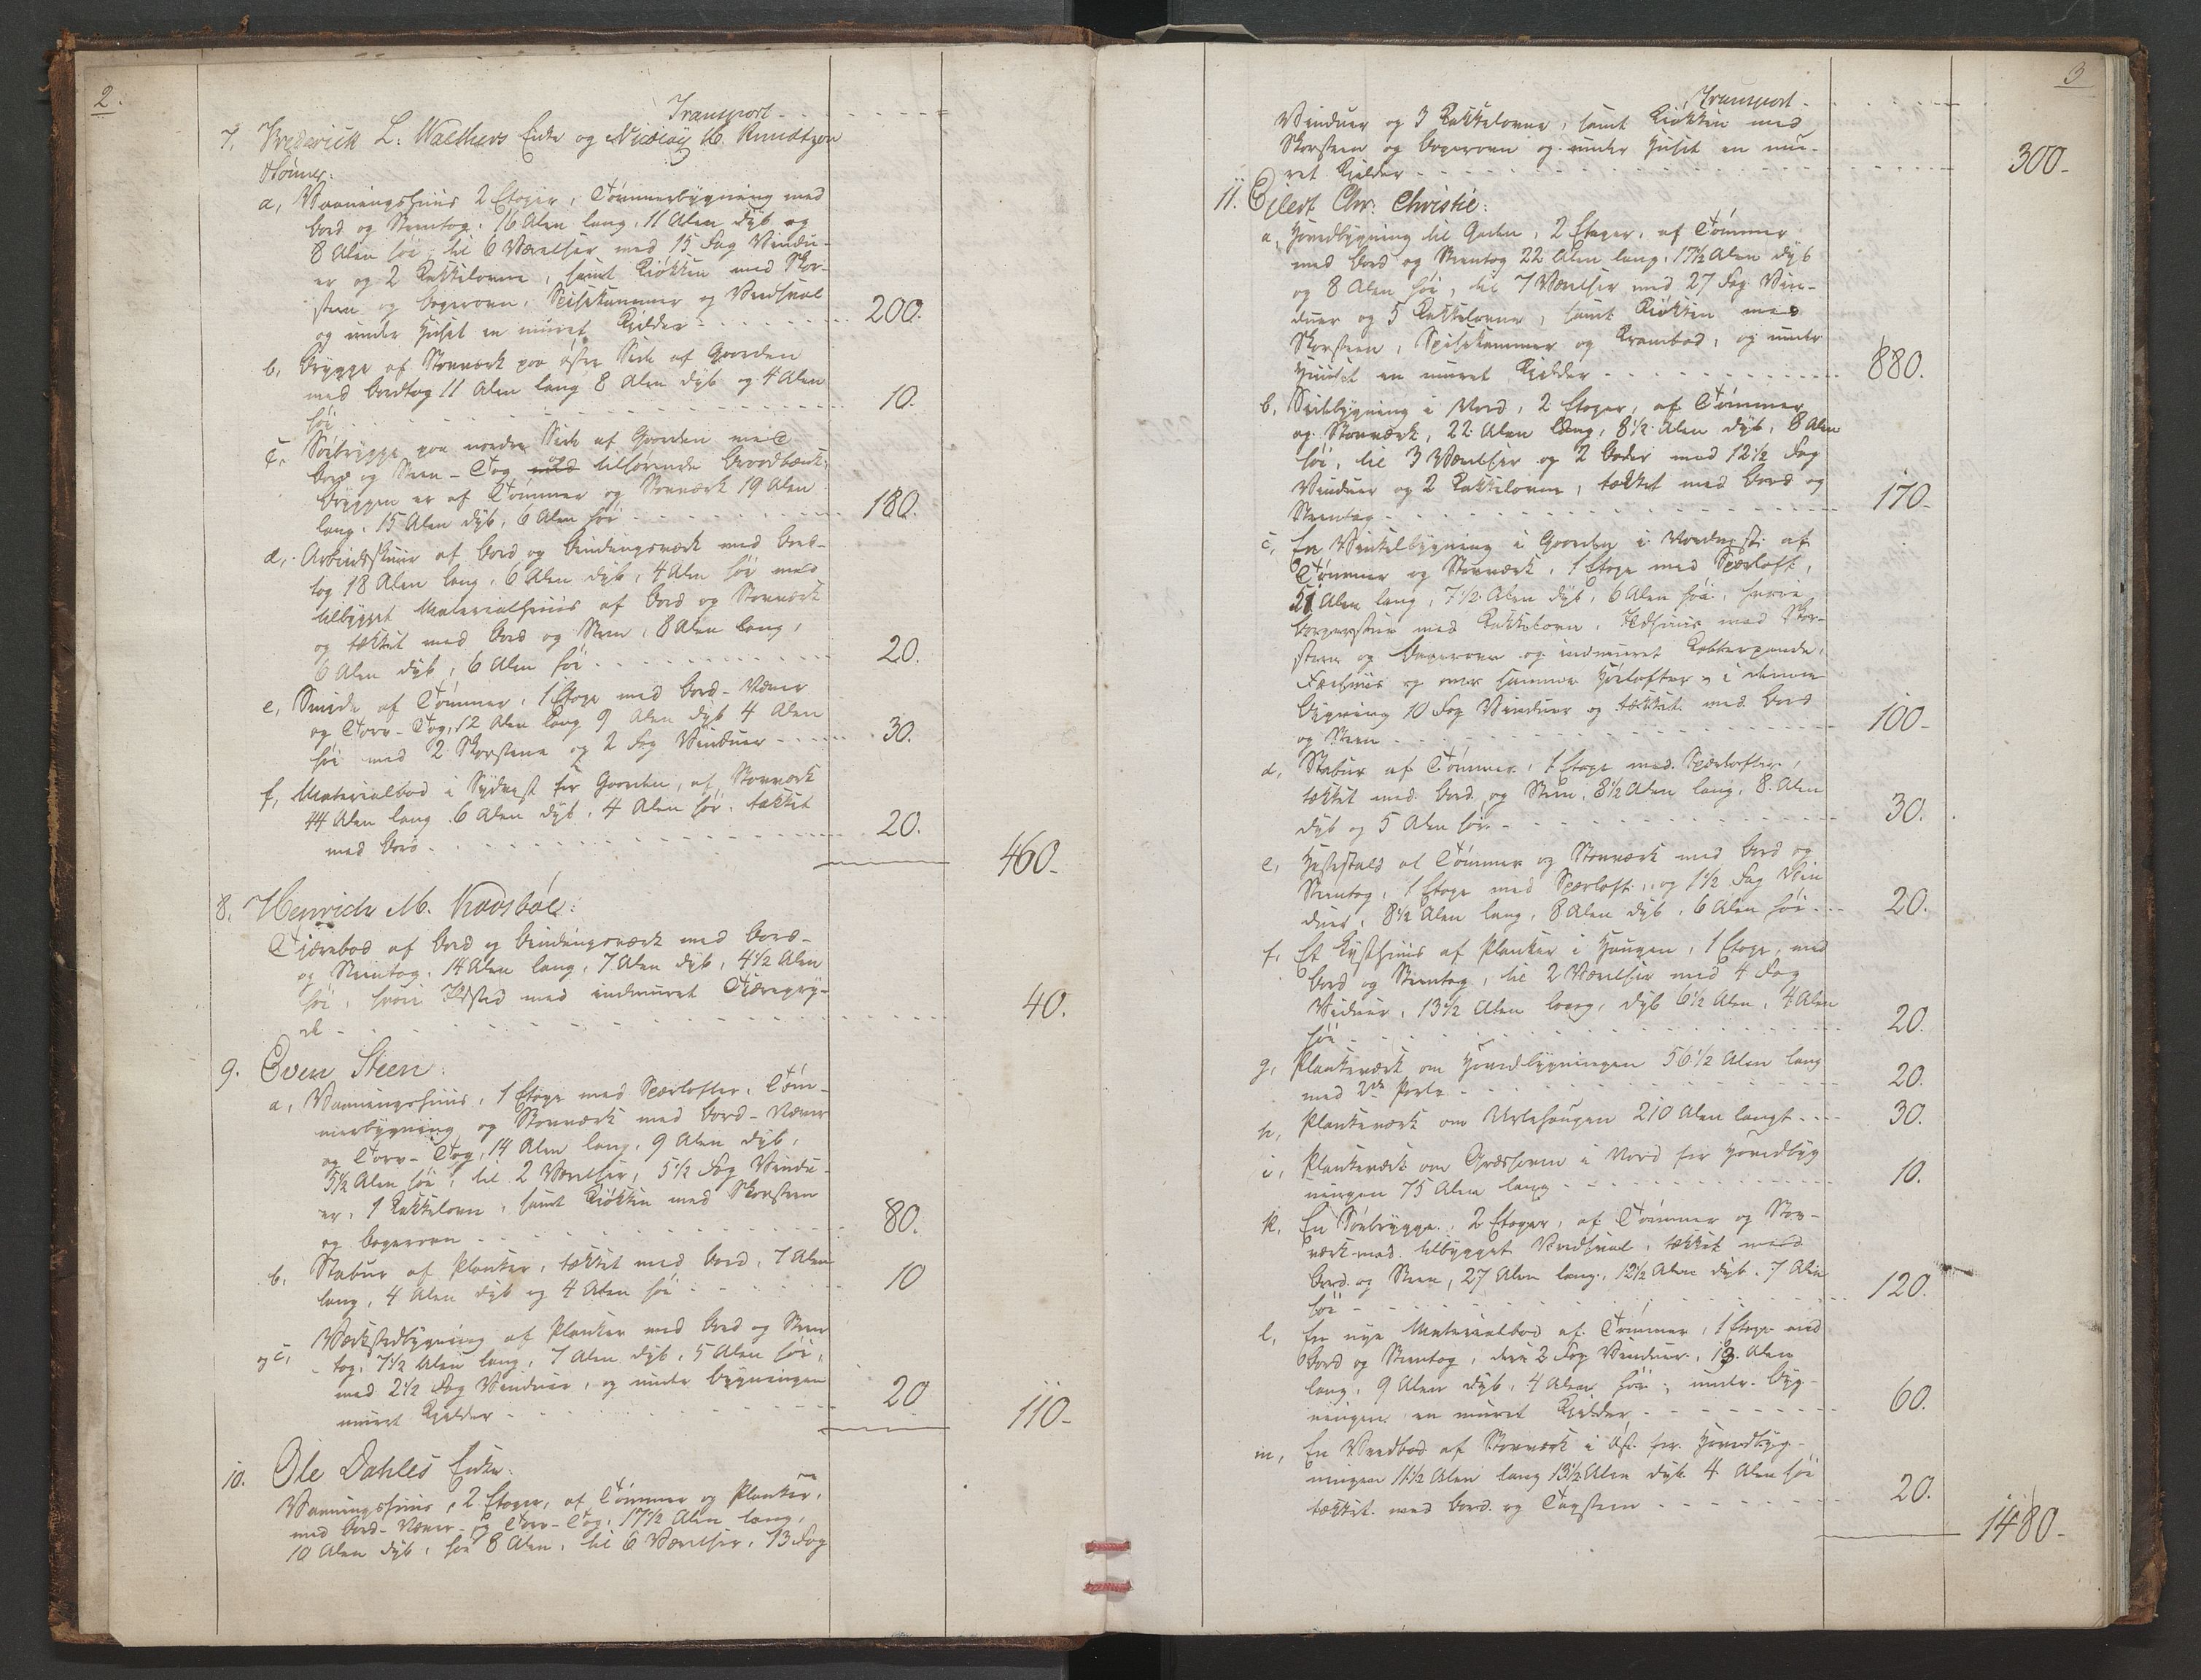 2.
Transport
7. Frederick L: Walthers Enke og Nicolaÿ H. Knudtzon
Sönner:
a, Vaaningshuus 2 Etager, Tömmerbygning med
bord og Steentag, 16 Alen lang, 11 Alen dyb og
8 Alen höi, til 6 Værelser med 15 Fag Vindu-
er og 2 Kakkelovne, samt Kiökken med Skor-
steen og bagerovn, Spisekammer og Vedskual
og under Huset en muret Kielder 200.
b, brygge af Stavværk paa östre Side af Gaarden
med bordtag 11 Alen lang 8 Alen dyb og 4 Alen
höi 10.
c, Söebrygge paa nordre Side af Gaarden med
bord og Steen-Tag og tilhörende
bryggen er af Tömmer og Stavværk 19 Alen
lang, 15 Alen dyb, 6 Alen höi 180.
d, Arbeidsskuur af bord og bindingsværk med bord-
tag 18 Alen lang, 6 Alen dyb, 4 Alen höi med
tilbygget Materialhuus af bord og Stavværk
og tækket med bord og Steen, 8 Alen lang,
6 Alen dyb, 6 Alen höi 20.
e, Smidie af Tömmer, 1 Etage med bord-Næver
og Torv-Tag, 12 Alen lang 9 Alen dyb 4 Alen
höi med 2 Skorstene og 2 Fag Vinduer 30.
f, Materialbod i Sydvest for Gaarden, af Stavværk
44 Alen lang 6 Alen dyb, 4 Alen höi, tækket
med bord 20.
460.
8. Henrich M. Kaasböl:
Tjærebod af bord og bindingsværk med bord-
og Steentag, 14 Alen lang, 7 Alen dyb, 4½ Alen
höi, hvori Ildsted med indmuret Tjæregry-
de 40.
9. Even Steen:
a, Vaaningshuus, 1 Etage med Spærlofter, Töm-
merbygning og Stavværk med bord-Næver
og Torv-Tag, 14 Alen lang, 9 Alen dyb,
5½ Alen höi, til 2 Værelser, 5½ Fag Vindu-
er, 1 Kakkelovn, samt Kiökken med Skorsteen
og bagerovn 80.
b, Stabur af Planker, tækket med bord, 7 Alen
lang, 4 Alen dyb og 4 Alen höi 10
og c, Værkstedbygning af Planker med bord og Steen
tag, 7½ Alen lang, 7 Alen dyb, 5 Alen höi,
med 2½ Fag Vinduer, og under bygningen
muret Kielder 20
110.
10. Ole Dahles Enke:
Vaaningshuus, 2 Etager, af Tömmer og Planker,
med bord-Næver- og Torv-Tag, 17½ Alen lang,
10 Alen dyb, höi 8 Alen, til 6 Værelser, 13 Fag
3
Transport
Vinduer og 3 Kakkelovne, samt Kiökken med
Skorsteen og bagerovn og under Huset en mu-
ret Kielder 300.
11. Eilert Chr: Christie:
a, Hovedbygning til Gaden, 2 Etager, af Tömmer
med bord og Steentag 22 Alen lang, 17½ Alen dyb
og 8 Alen höi, til 7 Værelser med 27 Fag Vin-
duer og 5 Kakkelovne, samt Kiökken med
Skorsteen, Spisekammer og Krambod, og under
Huset en muret Kielder 880.
b, Sidebygning i Nord, 2 Etager, af Tömmer
og Stavværk, 22 Alen lang, 8½ Alen dyb, 8 Alen
höi, til 3 Værelser og 2 boder med 12½ Fag
Vinduer og 2 Kakkelovne, tækket med bord og
Steentag 170.
c, En Vinkelbygning i Gaarden i Nordvest af
Tömmer og Stavværk, 1 Etage med Spærloft,
21 Alen lang, 7½ Alen dyb, 6 Alen höi, hvori
borgerstue med Kakkelovn, Ildhuus med Skor-
steen og bagerovn og indmuret Kobberpande,
Fæehuus og over samme Höelofter, i denne
bygning 10 Fag Vinduer og tækket med bord
og Steen 100.
d, Stabur af Tömmer, 1 Etage med Spærlofter,
tækket med bord og Steen, 8½ Alen lang, 8 Alen
dyb og 5 Alen höi 30.
e, Hestestald af Tömmer og Stavværk med bord og
Steentag, 1 Etage med Spærloft, og 1½ Fag Vin
duer, 8½ Alen lang, 8 Alen dyb, 6 Alen höi 20.
f, Et Lysthuus af Planker i Haugen, 1 Etage, med
bord og Steentag, til 2 Værelser med 4 Fag
Vinduer, 13½ Alen lang, dyb 6½ Alen, 4 Alen
höi 20.
g, Plankeværk om Hovedbygningen 56½ Alen lang
med 2de Porte 20.
h, Plankeværk om Urtehaugen 210 Alen langt 30.
i, Plankeværk om Græshaven i Nord for Hovedbyg
ningen 75 Alen lang 10.
k, En Söebrygge, 2 Etager, af Tömmer og Stav-
værk med tilbygget Vedskual, tækket med
bord og Steen, 27 Alen lang, 12½ Alen dyb, 7 Alen
höi 120.
l, En nye Materialbod af Tömmer, 1 Etage med
bord og Steentag, deri 2 Fag Vinduer, 13 Alen
lang, 9 Alen dyb, 4 Alen höi, under byg-
ningen en muret Kielder 60.
m, En Vedbod af Stavværk i Öst for Hovedbyg-
ningen 11½ Alen lang 13½ Alen dyb 4 Alen höi
tækket med bord og Tagsteen 20.
1480.